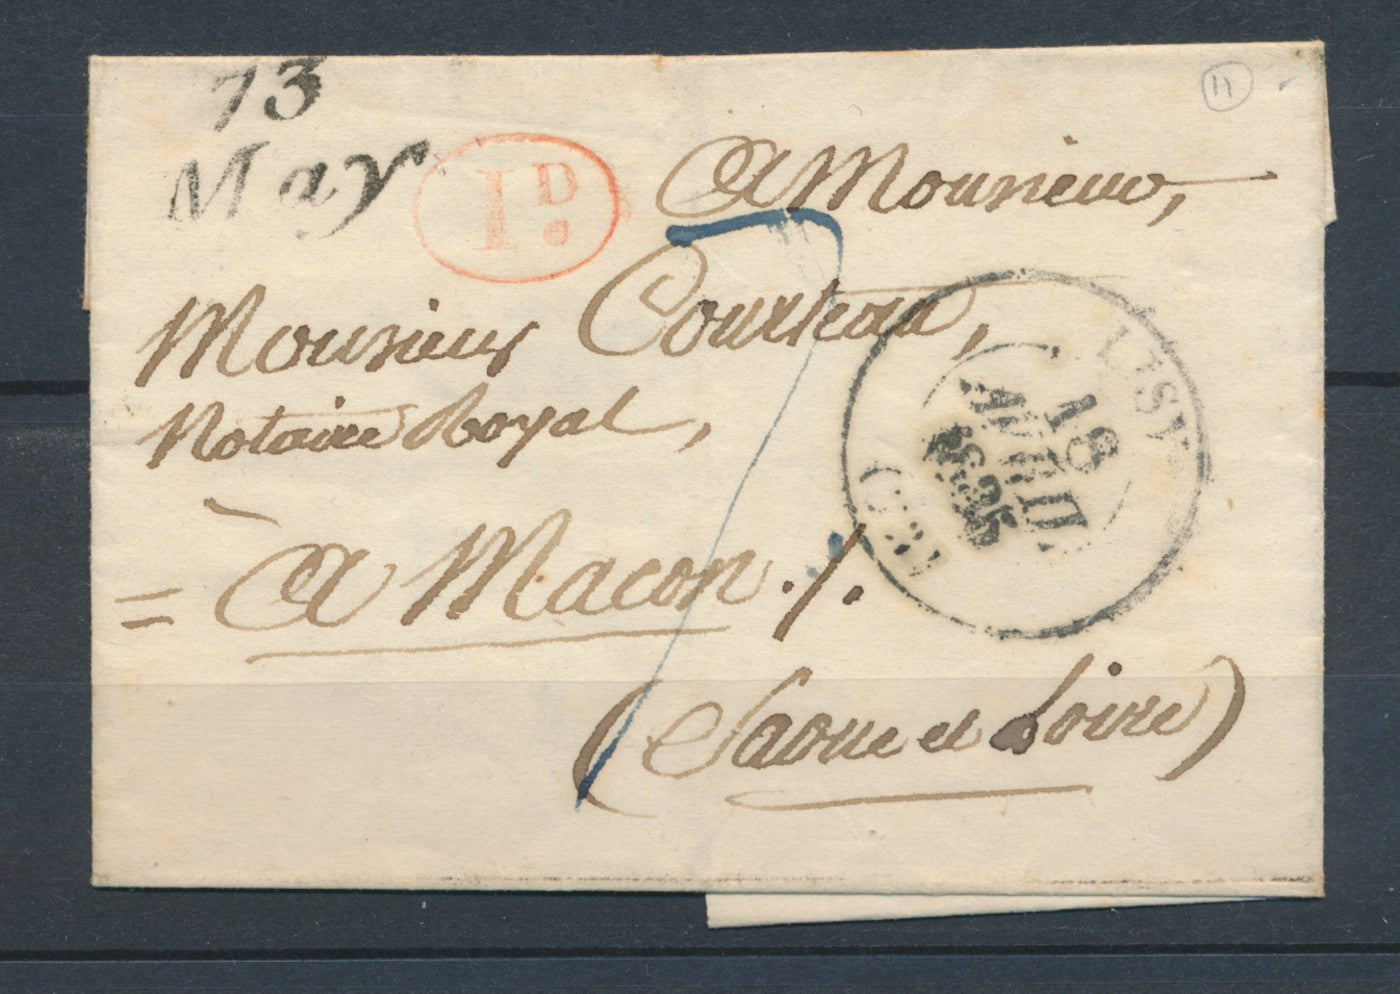 73
May
1D.
11
A Monsieur,
Monsieur Courteau,
Notaire Royal,
= A Macon ./.
(Saone et Loire)
LISY
18
AVRIL
1835
(73)
7